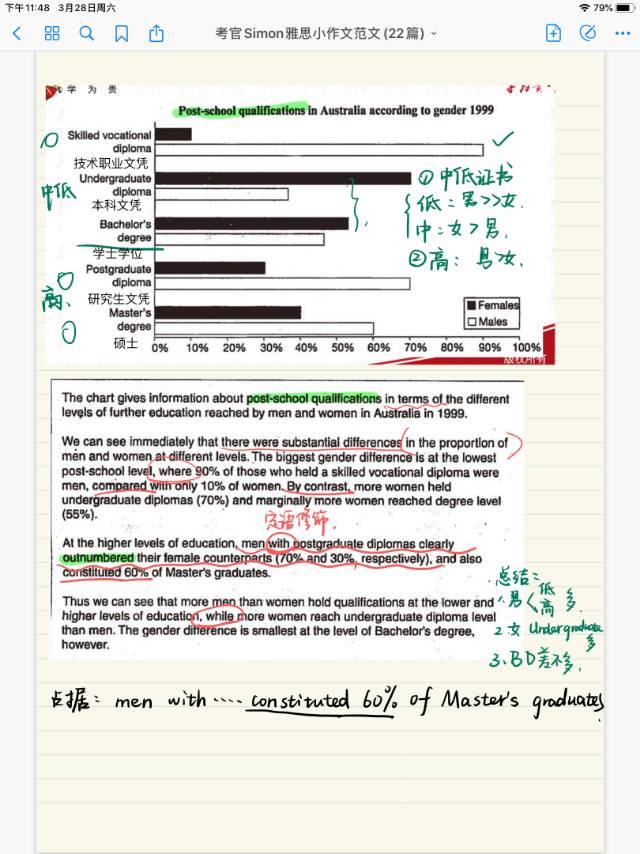 下午11:48 3月28日周六
79%
考官Simon雅思小作文范文(22篇)
学 为 贵
Post-school qualifications in Australia according to gender 1999
Skilled vocational
diploma
技术职业文凭
Undergraduate
diploma
本科文凭
Bachelor's
degree
学士学位
Postgraduate
diploma
研究生文凭
Master's
degree
硕士
中低
高、
① 中低证书
低：男>>女.
中：女>男,
②高： 男>女.
Females
Males
0% 10% 20% 30% 40% 50% 60% 70% 80% 90% 100%
版权所有
The chart gives information about post-school qualifications in terms of the different
levels of further education reached by men and women in Australia in 1999.
We can see immediately that there were substantial differences in the proportion of
men and women at different levels. The biggest gender difference is at the lowest
post-school level, where 90% of those who held a skilled vocational diploma were
men, compared with only 10% of women. By contrast, more women held
undergraduate diplomas (70%) and marginally more women reached degree level
(55%).
定语修饰.
At the higher levels of education, men with postgraduate diplomas clearly
outnumbered their female counterparts (70% and 30%, respectively), and also
constituted 60% of Master's graduates.
Thus we can see that more men than women hold qualifications at the lower and
higher levels of education, while more women reach undergraduate diploma level
than men. The gender difference is smallest at the level of Bachelor's degree,
however.
总结：
1.男<低高 多
2.女 Undergraduate
多
3.BD差不多.
占据： men with .... constituted 60% of Master's graduates.